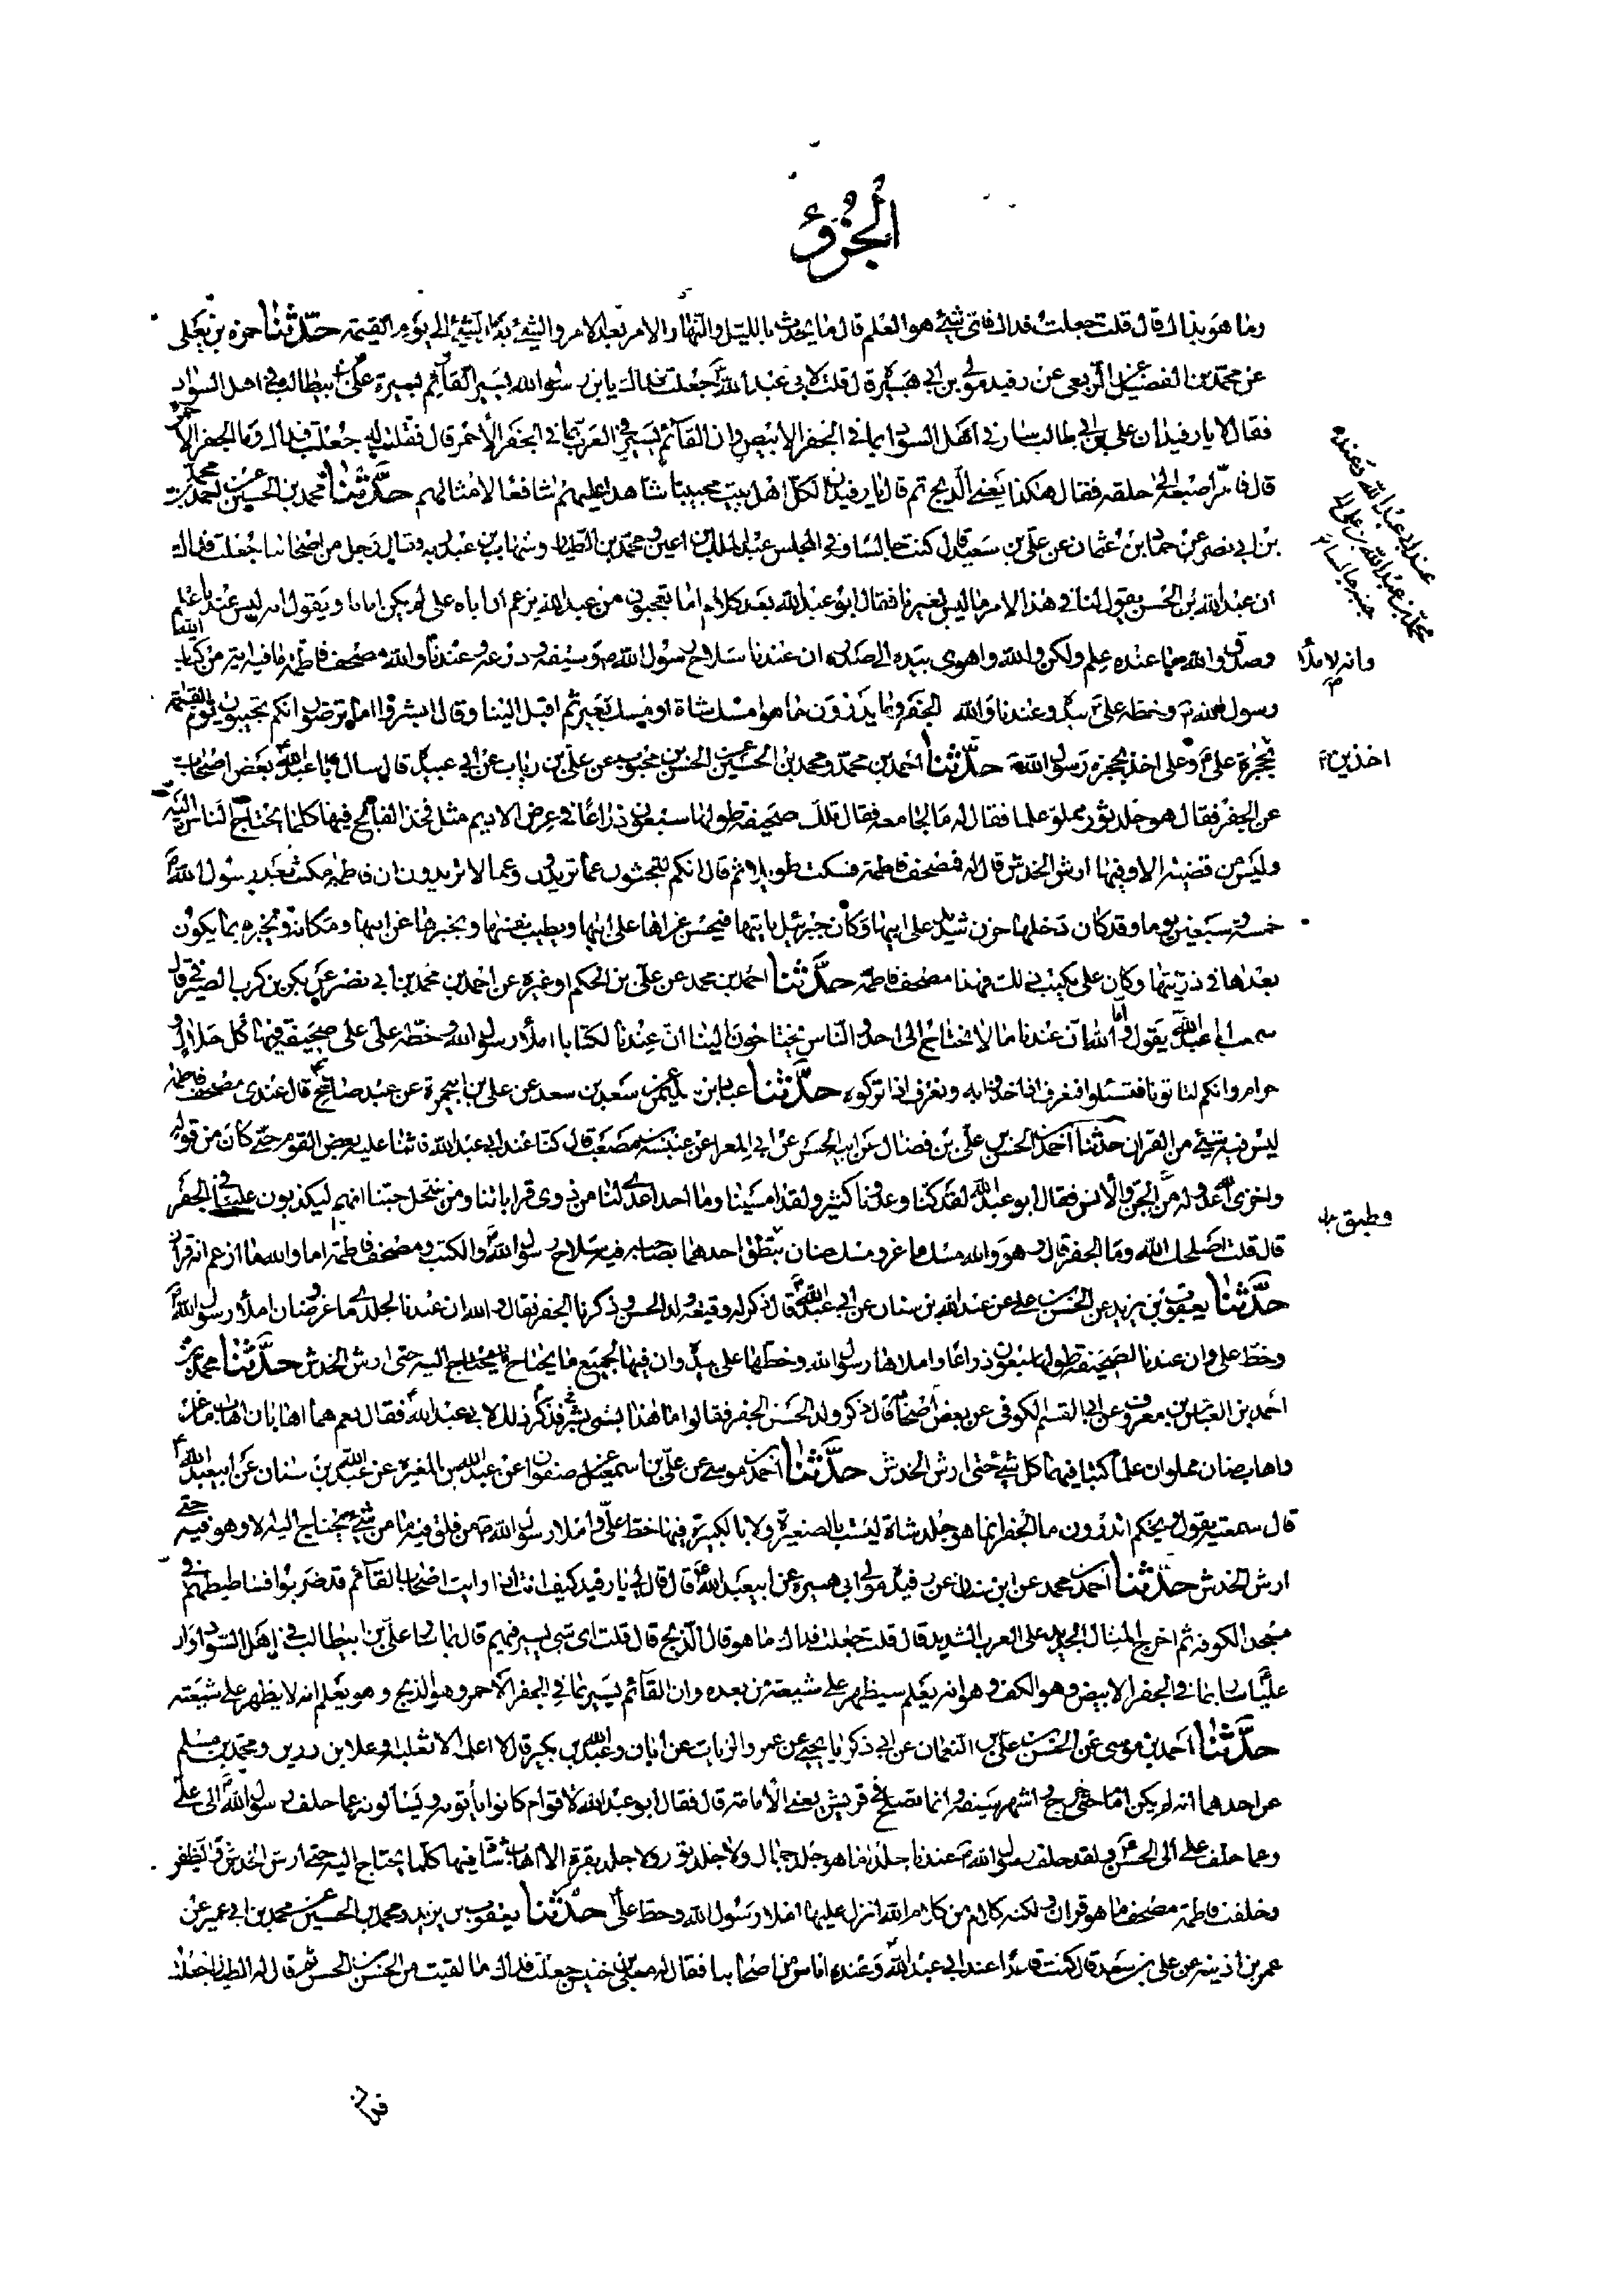 الجزؤ
وما هو بذاك قال قلت جعلت فداك فاى شئ هو العلم قال ما يحدث بالليل والنهار والامر بعد الامر والشئ بعد الشئ الى يوم القيمة حدثنا حمزه بن يعلى
عن محمد بن الفضيل عن الربعى عن رفيد مولى بن ابى هبيرة قال قلت لابى عبد الله جعلت فداك يابن رسول الله يسير القائم بسيرة على بن ابيطالب فى اهل السواد
فقال لا يا رفيد ان على بن ابى طالب سار فى اهل السواد بما فى الجفر الابيض وان القائم يسير فى العرب بما فى الجفر الأحمر قال فقلت له جعلت فداك وما الجفر الاحمر
قال فامر اصبعه الى حلقه فقال هكذا يعنى الذبح ثم قال يا رفيد ان لكل اهل بيت مجيبا شاهدا عليهم شافعا لامثالهم حدثنا محمد بن الحسين عن احمد بن محمد
بن ابى نصر عن حماد بن عثمان عن على بن سعيد قال كنت جالسا وفى المجلس عبد الملك بن اعين ومحمد بن الطيار وشهاب بن عبد ربه فقال رجل من اصحابنا جعلت فداك
عند ابى عبد الله وعنده
محمد بن عبد الله بن على الى
جنبه جالسا
ان عبد الله بن الحسن يقول لنا فى هذا الامر ما ليس لغيرنا فقال ابو عبد الله بعد كلام اما تعجبون من عبد الله يزعم ان اباه على لم يكن اماما ويقول انه ليس عندنا علم
وصدق والله ما عنده علم ولكن والله واهوى بيده الى صدره ان عندنا سلاح رسول الله ص وسيفه ودرعه وعندنا والله مصحف فاطمة ما فيه اية من كتاب الله
وانه لاملاء
رسول الله وخطه على بيده وعندنا والله الجفر وما يدرون ما هو امسك شاة او مسك بعير ثم اقبل الينا وقال ابشروا اما ترضون انكم تجيئون يوم القيمة
اخذين
بحجزة على وعلى اخذ بحجزة رسول الله حدثنا احمد بن محمد ومحمد بن الحسين عن الحسن بن محبوب عن على بن رياب عن ابى عبيدة قال سال ابا عبد الله بعض اصحابنا
عن الجفر فقال هو جلد ثور مملو علما فقال له ما الجامعه فقال تلك صحيفه طولها سبعون ذراعا فى عرض الاديم مثل فخذ الفالج فيها كلما يحتاج الناس اليه
وليس من قضيه الا وفيها ارش الخدش قال له فمصحف فاطمة فسكت طويلا ثم قال انكم لتبحثون عما تريدون وعما لا تريدون ان فاطمة مكثت بعد رسول الله
خمسة وسبعين يوما وقد كان دخلها حزن شديد على ابيها وكان جبرئيل ياتيها فيحسن عزاها على ابيها ويطيب نفسها ويخبرها عن ابيها ومكانه ويخبرها بما يكون
بعدها فى ذريتها وكان على يكتب ذلك فهذا مصحف فاطمة حدثنا احمد بن محمد عن على بن الحكم او غيره عن احمد بن محمد بن ابى نصر عن بكر بن كرب الصيرفى قال
سمعت ابا عبد الله يقول اما والله ان عندنا ما لا نحتاج الى احد والناس يحتاجون الينا ان عندنا لكتابا املاء رسول الله وخطه على على صحيفة فيها كل حلال و
حرام وانكم لتاتونا فتسئلوا فنعرف اذا اخذوا به ونعرف اذا تركوه حدثنا عباد بن سليمن عن سعد بن سعد عن على بن ابى حمزة عن عبد صالح قال عندى مصحف فاطمة
ليس فيه شئ من القران حدثنا احمد بن الحسن بن على بن فضال عن ابيه الحسن عن ابى المعرا عن عنبسه بن مصعب قال كنا عند ابى عبد الله فاثنا عليه بعض القوم حتى كان من قوله
واخزى الله عدوك من الجن والانس فقال ابو عبد الله لقد كنا وعدونا كثير ولقد امسينا وما احد اعدى لنا من ذوى قراباتنا ومن ينتحل حبنا انهم ليكذبون علينا فى الجفر
قال قلت اصلحك الله وما الجفر قال وهو والله مسك ماعز ومسك ضان ينطق احدهما بصاحبه فيه سلاح رسول الله والكتب ومصحف فاطمة اما والله ما ازعم انه قران
حدثنا يعقوب بن يزيد عن الحسن بن على عن عبد الله بن سنان عن ابى عبد الله قال ذكر له وقيعه ولد الحسن وذكرنا الجفر فقال والله ان عندنا لجلدى ماعز وضان املاء رسول الله
وخط على وان عندنا لصحيفة طولها سبعون ذراعا واملاها رسول الله وخطها على بيده وان فيها لجميع ما يحتاج اليه حتى ارش الخدش حدثنا محمد بن
احمد بن العباس بن معروف عن ابى القسم الكوفى عن بعض اصحابنا قال ذكر ولد الحسن الجفر فقالوا ما هذا بشى فذكر ذلك لابى عبد الله فقال نعم هما اهابان اهاب ماعز
واهاب ضان مملوان علما كتبا فيهما كل شئ حتى ارش الخدش حدثنا احمد بن موسى عن على بن اسمعيل عن صفوان عن عبد الله بن المغيرة عن عبد الله بن سنان عن ابيعبد الله
قال سمعته يقول ويحكم اتدرون ما الجفر انما هو جلد شاة ليست بالصغيرة ولا بالكبيرة فيها خط على واملاء رسول الله من فلق فيه ما من شئ يحتاج اليه الا وهو فيه حتى
ارش الخدش حدثنا احمد بن محمد عن ابن سنان عن رفيد مولى ابى هبيرة عن ابيعبد الله قال قال لى يا رفيد كيف انت اذا رايت اصحاب القائم قد ضربوا فساطيطهم فى
مسجد الكوفه ثم اخرج المثال الجديد على العرب الشديد قال قلت جعلت فداك ما هو قال الذبح قال قلت اى شى يسير فيهم قال بما سار على بن ابيطالب فى اهل السواد
عليا سار بما فى الجفر الابيض وهو الكف وهو انه يعلم سيظهر على شيعته من بعده وان القائم يسير بما فى الجفر الاحمر وهو الذبح وهو يعلم انه لا يظهر على شيعته
حدثنا احمد بن موسى عن الحسن بن على بن النعمان عن ابى ذكريا يحيى عن عمرو الزيات عن ابان وعبد الله بن بكير قال لا اعلمه الا ثعلبه وعلا بن رزين ومحمد بن مسلم
عن احدهما انه لم يكن اماما حتى خرج واشهر سيفه وانما تصلح فى قريش يعنى الأمامة قال فقال ابو عبد الله لاقوام كانوا يأتونه ويسألونه عما خلف رسول الله الى على
وعما خلف على الى الحسن ولقد خلف رسول الله عندنا جلدا ما هو جلد جمال ولا جلد ثور ولا جلد بقرة الا اهاب شاة فيها كلما يحتاج اليه حتى ارش الخدش والظفر
وخلفت فاطمة مصحفا ما هو قران ولكنه كلام من كلام الله انزل عليها املاء رسول الله وخط على حدثنا يعقوب بن يزيد ومحمد بن الحسين عن محمد بن ابى عمير عن
عمر بن اذينه عن على بن سعد قال كنت قاعدا عند ابى عبد الله وعنده اناس من اصحابنا فقال له معلى بن خنيس جعلت فداك ما لقيت من الحسن بن الحسن ثم قال له الطيار جعلت
فداك